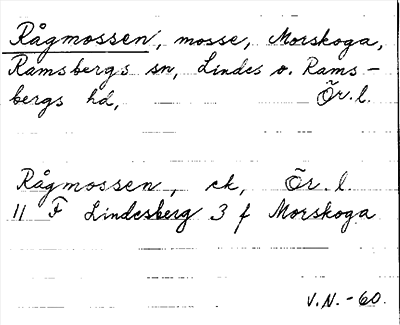 Rågmossen, mosse, Morskoga,
Ramsbergs sn, Lindes o. Rams-
bergs hd, Ör. l.
Rågmossen, ek, Ör. l.
11 F Lindesberg 3 f Morskoga
V.N. -60.